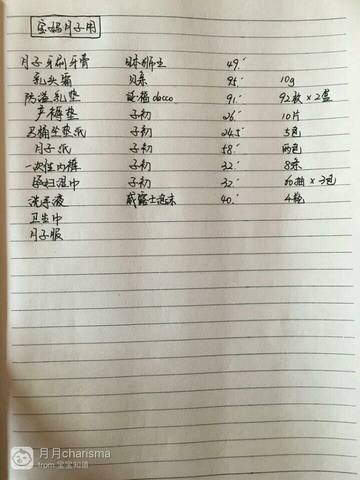 宝妈月子用
月子牙刷牙膏 日本狮王 49.
乳头霜 贝亲 95. 10g
防溢乳垫 诺福 dacco 91. 92枚×2盒
产褥垫 子初 26. 10片
马桶坐垫纸 子初 24.5 5包
月子纸 子初 58. 两包
一次性内裤 子初 32. 8条
孕妇湿巾 子初 32. 60抽×3包
洗手液 威露士泡沫 40. 4瓶
卫生巾
月子服
月月charisma
from 宝宝知道